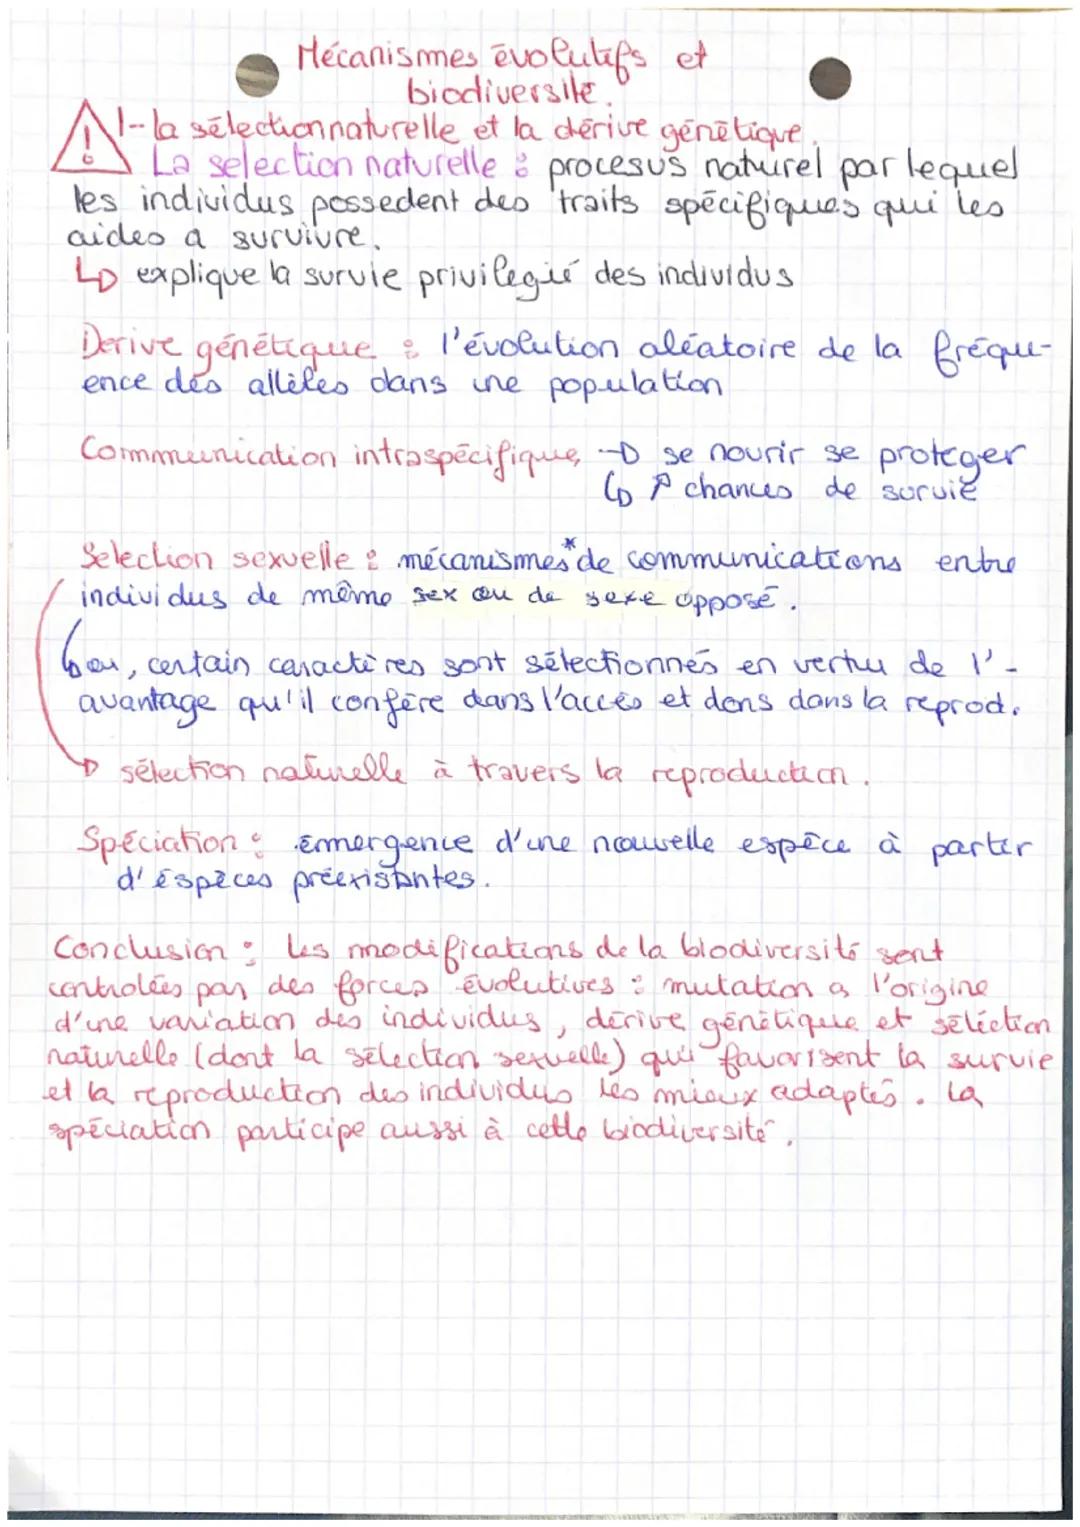 Mécanismes évolutifs et
biodiversité.
1- la sélection naturelle et la dérive génétique.
La selection naturelle : procesus naturel par lequel
les individus possedent des traits spécifiques qui les
aides a survivre.
↳ explique la survie privilegié des individus
Derive génétique : l'évolution aléatoire de la fréqu-
ence des allèles dans une population
Communication intraspécifique → se nourir se proteger
↳ ↗ chances de survie
Selection sexuelle : mécanismes* de communications entre
individus de même sex ou de sexe opposé.
↳ ou, certain caractères sont sélectionnés en vertu de l'-
avantage qu'il confère dans l'accès et dons dans la reprod.
→ sélection naturelle à travers la reproduction.
Spéciation : émergence d'une nouvelle espèce à partir
d'éspèces préexistantes.
Conclusion : les modifications de la biodiversité sont
controlées par des forces évolutives : mutation a l'origine
d'une variation des individus, dérive génétique et séléction
naturelle (dont la sélection sexuelle) qui favorisent la survie
et la reproduction des individus les mieux adaptés. La
spéciation participe aussi à cette biodiversité.